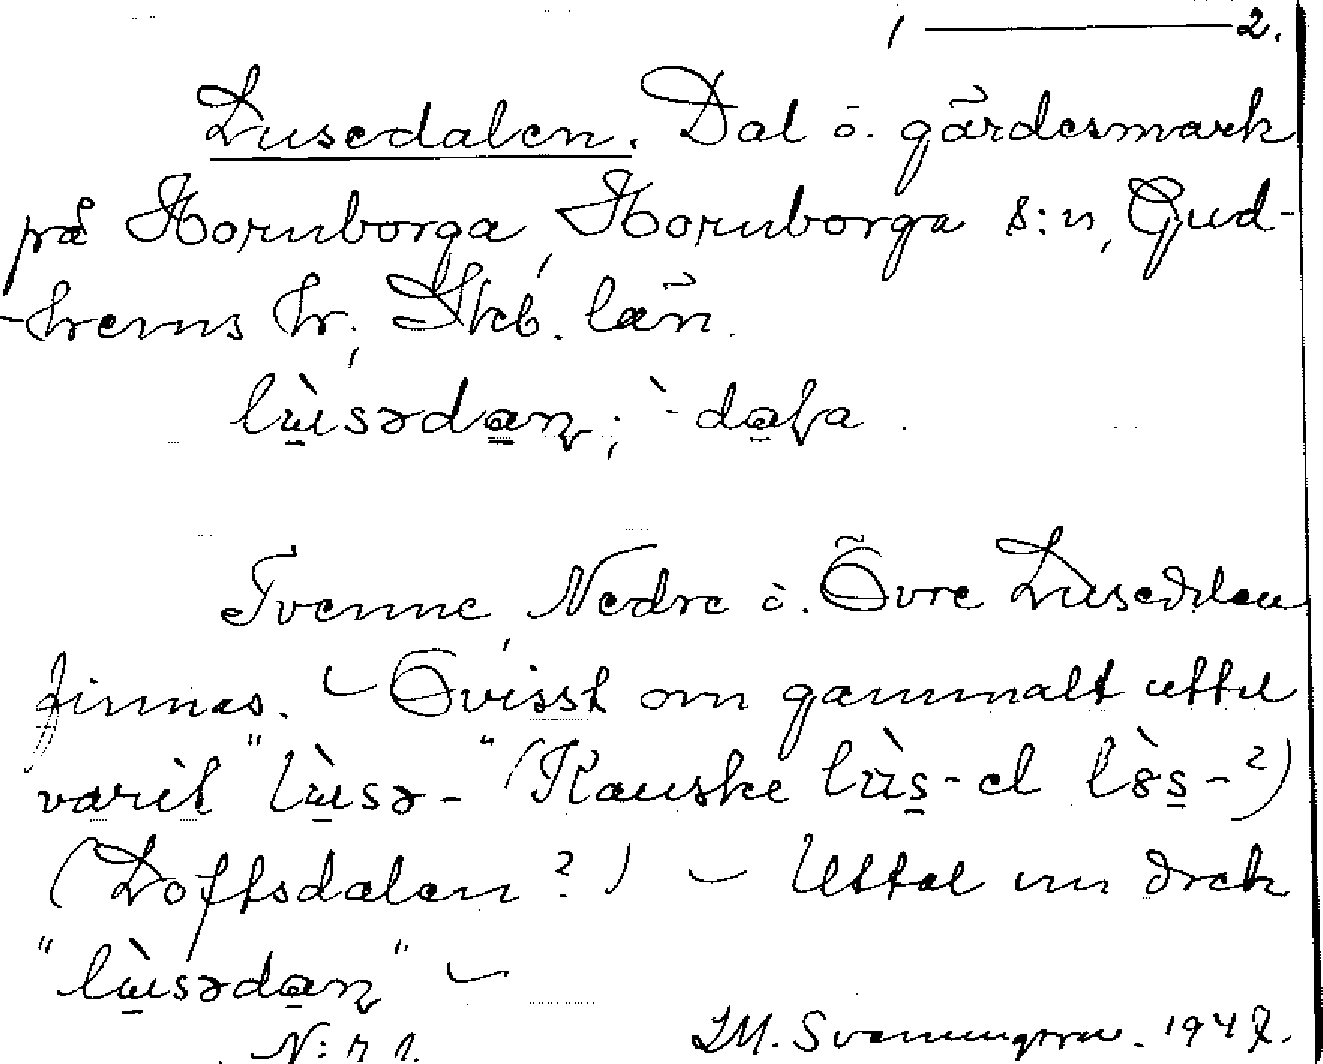 1 ——— 2.
Lusedalen. Dal o. gärdesmark
på Hornborga, Hornborga s:n, Gud-
-hems hr, Skb. län.
lù̱səda̱ɳ; `-da̱ɽa.
Tvenne, Nedre o. Övre Lusedalen
finnas. – Ovisst om gammalt uttal
varit "lù̱sə-" (Kanske lùs̱-el lòs̱-?)
(Loftsdalen?) – Uttal nu dock
"lù̱səda̱ɳ" –
N:
I.M. Svenungsson. 1947.